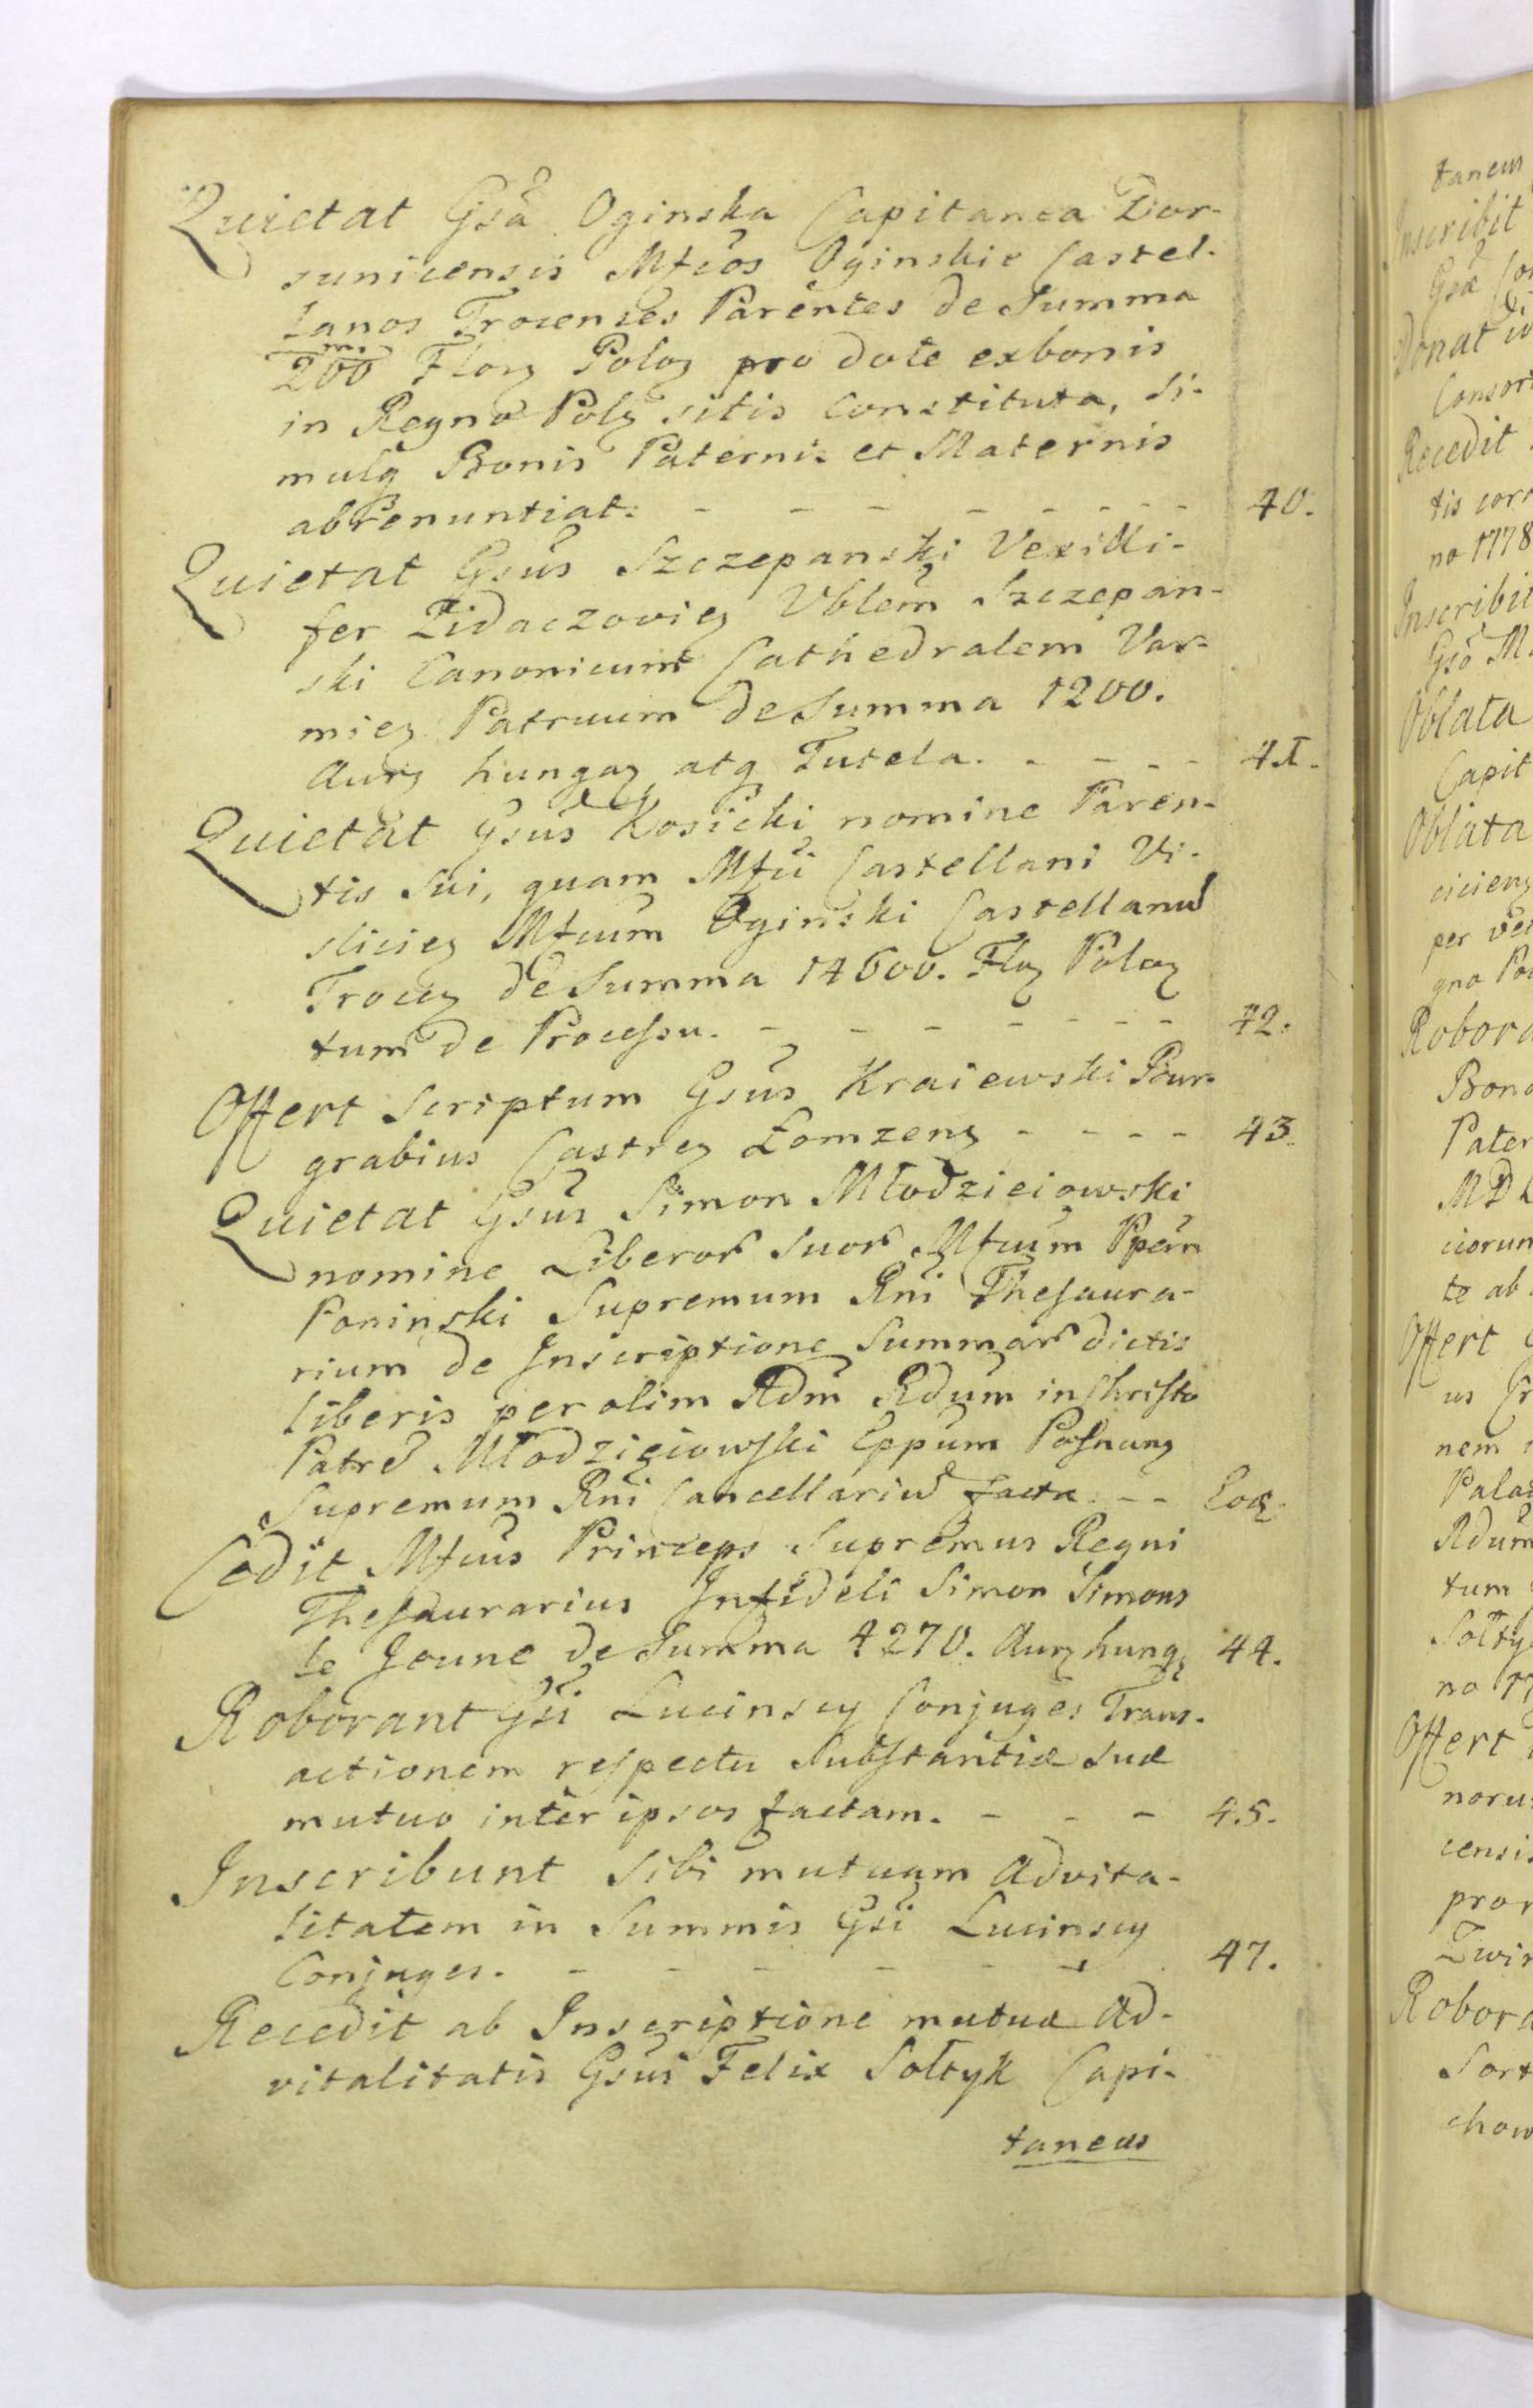 Quietat Gsa Oginska Capitanea Dor-
sunicensis Mfcos Oginskie Castel-
lanos Trocenses Parentes de Summa
200 m. Flor Polo pro dote ex bonis
in Regno Pol sitis Constituta, Si-
mulq Bonis Paternis et Maternis
abrenuntiat. - - - - - - - 40.
Quietat Gsus Szczepanski Vexilli-
fer Zidaczovien Vblem Szczepan-
ski Canonicum Cathedralem Var-
mien Patruum de Summa 1200.
Aur hunga atq Tutela. - - - - 41.
Quietat Gsus Kosicki nomine Paren-
tis Sui, quam Mfci Castellani Vi-
slicien Mfcum Oginski Castellanum
Trocen de Summa 14600. Flo Polo
tum de Processu. - - - - - - - 42.
Offert Scriptum Gsus Kraiewski Bur-
grabius Castren Łomzens - - - - 43.
Quietat Gsus Simon Młodzieiowski
nomine Liberor Suor Mfcum Ppem
Poninski Supremum Rni Thesaura-
rium de Inscriptione Summar dictis
liberis per olim Adm Rdum in Christo
Patre Młodzieiowski Eppum Posnan
Supremum Rni Cancellariu facta. - - Eod.
Cedit Mfcus Princeps Supremus Regni
Thesaurarius Infideli Simon Simons
le Jeune de Summa 4270. Aur hung 44.
Roborant Gsi Lucinscy Conjuges Trans-
actionem respectu Substantiæ suæ
mutuo inter ipsos factam. - - - 45.
Inscribunt Sibi mutuam Advita-
litatem in Summis Gsi Lucinscy
Conjuges. - - - - - - 47.
Recedit ab Inscriptione mutuæ Ad-
vitalitatis Gsus Felix Sołtyk Capi-
taneus
taneus
Inscribit
Gsæ
Donat
Consort
Recedit
no 1778
Inscribit
Gso
Oblata
Capit
Oblata
per
Pater
Offert
nem
tum
Offert